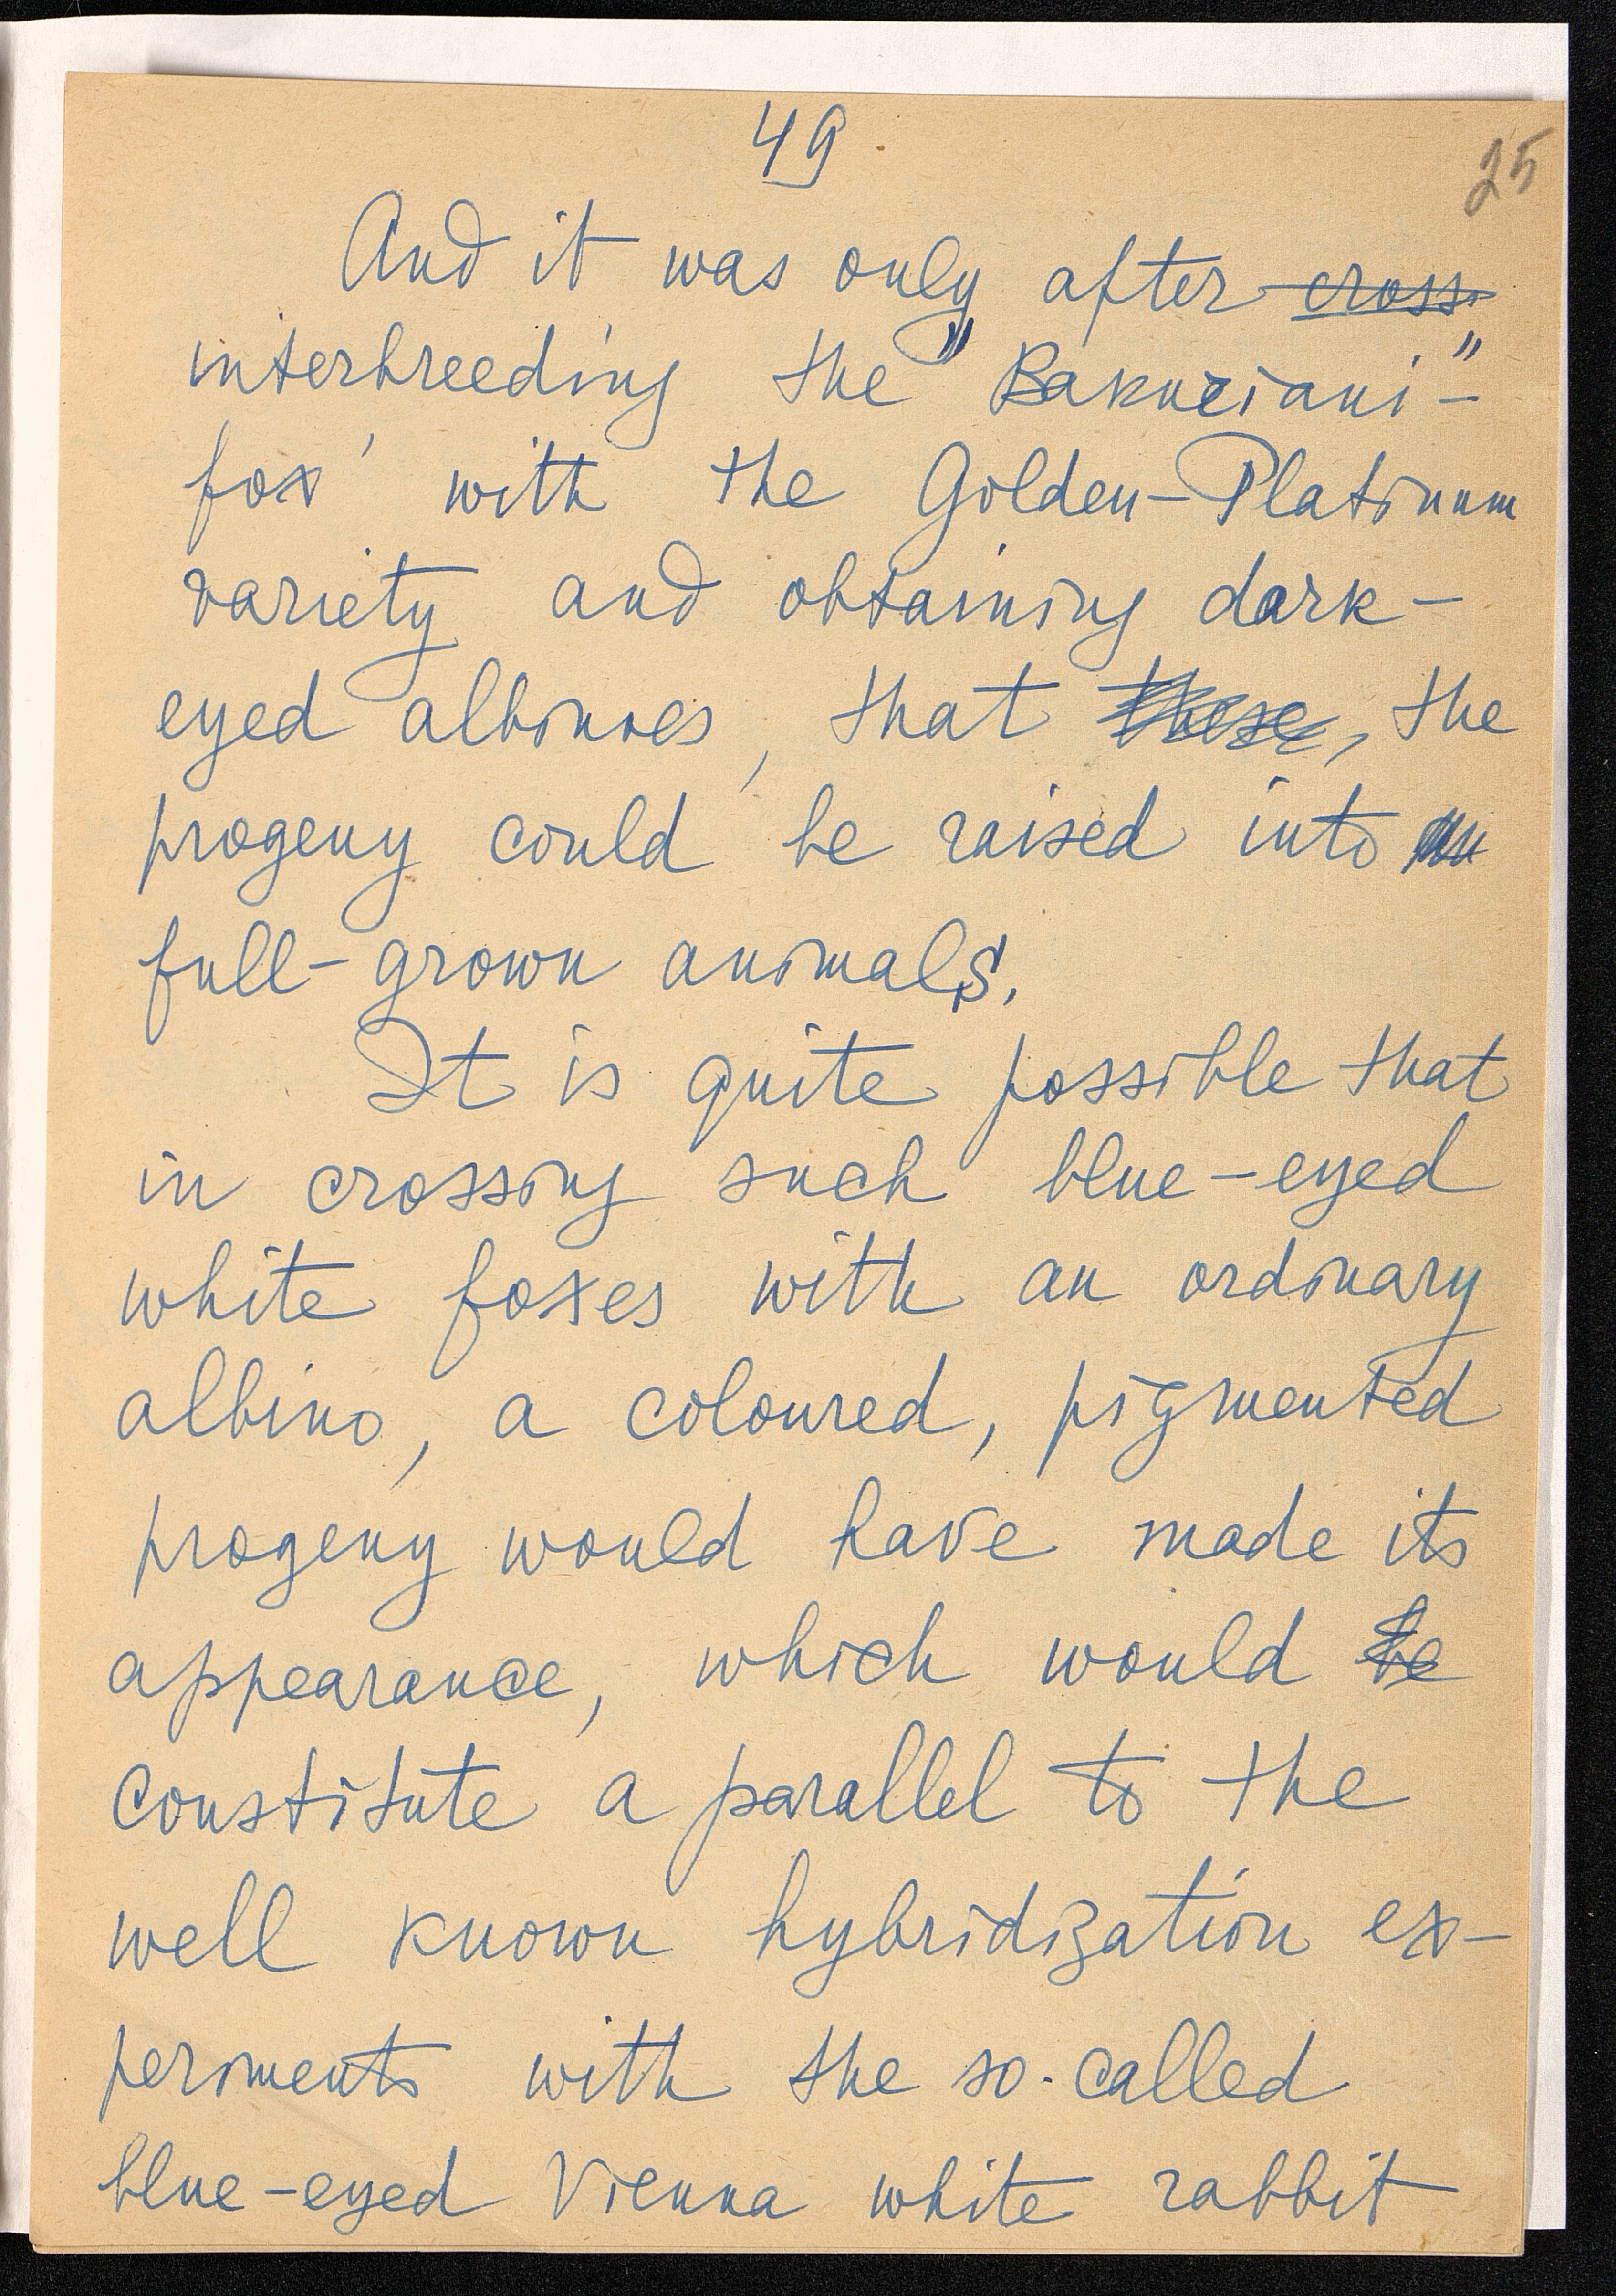 49.
25
And it was only after cross-
interbreeding the "Bakuriani"-
fox with the Golden-Platinum
variety and obtaining dark-
eyed albinoes, that these, the
progeny could be raised into an
full-grown animals.
It is quite possible that
in crossing such blue-eyed
white foxes with an ordinary
albino, a coloured, pigmented
progeny would have made its
appearance, which would be
constitute a parallel to the
well known hybridization ex-
periments with the so-called
blue-eyed Vienna white rabbit